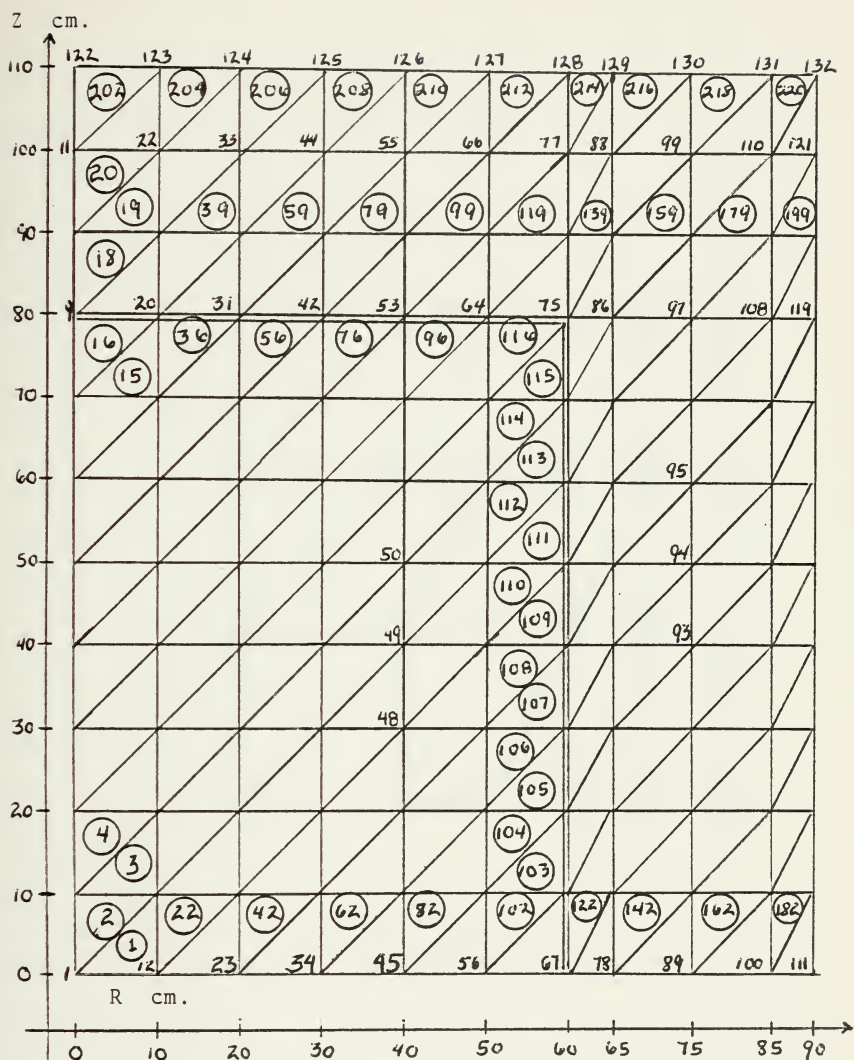 Z cm.
122 123 124 125 126 127 128 129 130 131 132
110
202 204 206 208 210 212 214 216 218 220
100 11 22 33 44 55 66 77 88 99 110 121
20
19 39 59 79 99 119 139 159 179 199
90
18
80 9 20 31 42 53 64 75 86 97 108 119
16 36 56 76 96 116
15 115
70
114
113
60 95
112
111
50 50 94
110
109
40 49 93
108
107
30 48
106
105
20
4 104
3 103
10
2 22 42 62 82 102 122 142 162 182
1
0 1 12 23 34 45 56 67 78 89 100 111
R cm.
0 10 20 30 40 50 60 65 75 85 90